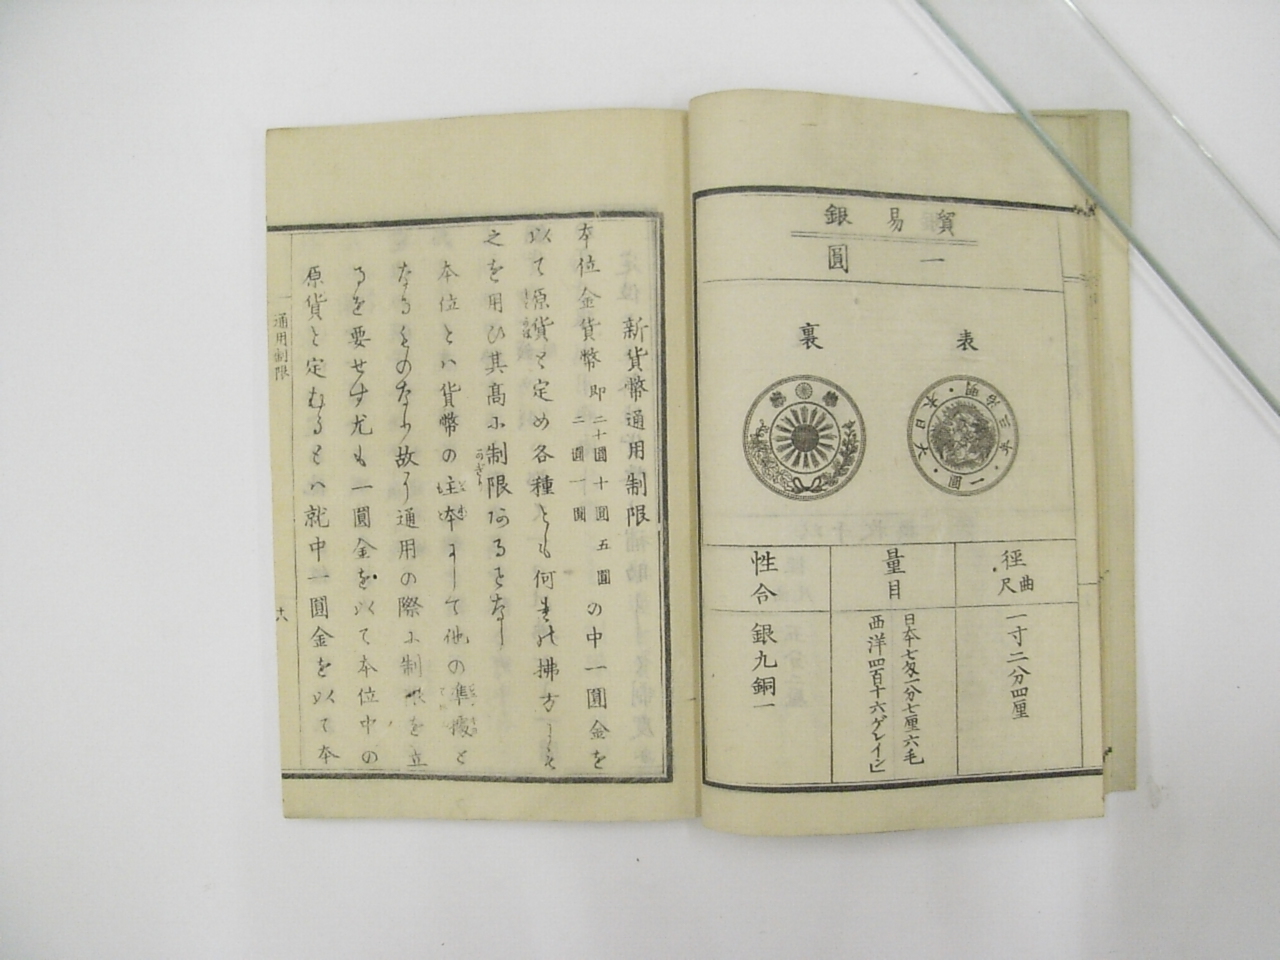 貿易銀
一圓
表
裏
明治三年
大日本
一圓
徑 曲尺
一寸二分四厘
量目
日本七匁一分七厘六毛
西洋四百十六ゲレイン
性合
銀九銅一
新貨幣通用制限
本位金貨幣即二十圓十圓五圓二圓一圓の中一圓金を
以て原貨と定め各種とも何れの拂方にも
之を用ひ其高に制限あることなし
本位とハ貨幣の主本にして他の準據と
なるものなり故に通用の際に制限を立
るを要せす尤も一圓金を以て本位中の
原貨と定むることハ就中一圓金を以て本
通用制限
六